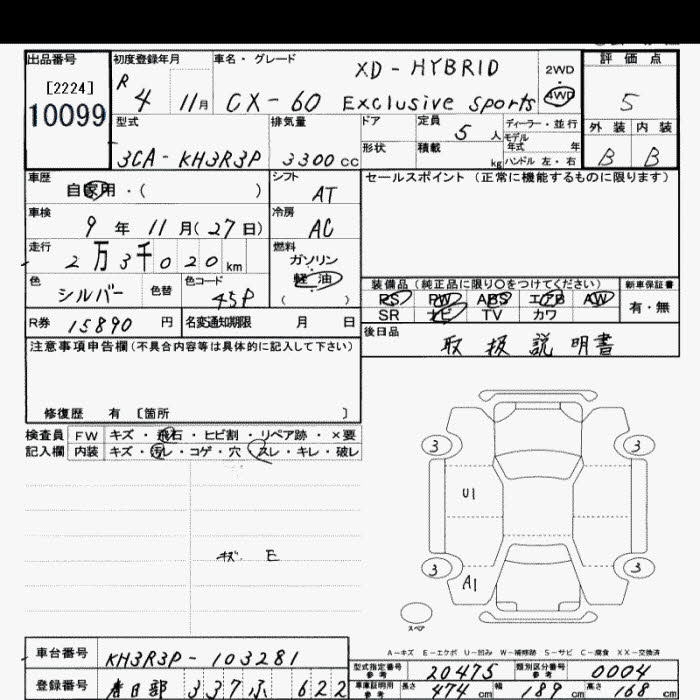 出品番号 初度登録年月 車名・グレード 評価点
[2224] R 4 11月 XD-HYBRID 2WD
10099 CX-60 Exclusive sports 4WD 5
型式 排気量 ドア 定員 5人 ディーラー・並行 外装 内装
モデル年式 年
3CA-KH3R3P 3300cc 形状 積載 kg ハンドル 左・右 B B
車歴 シフト セールスポイント (正常に機能するものに限ります)
自家用・( ) AT
車検 冷房
9年 11月(27日) AC
走行 燃料
2万3千020km ガソリン
色 色替 色コード 軽油 装備品(純正品に限り○をつけてください) 新車保証書
シルバー 45P ( ) PS PW ABS エアB AW 有・無
SR ナビ TV カワ
R券 15890円 名変通知期限 月 日 後日品
注意事項申告欄(不具合内容等は具体的に記入して下さい) 取扱説明書
修復歴 有 [箇所 ]
検査員 FW キズ・飛石・ヒビ割・リペア跡・×要
記入欄 内装 キズ・汚レ・コゲ・穴・スレ・キレ・破レ
3 3
U1
キズ E
3 3
A1
スペア
A-キズ E-エクボ U-凹み W-補修跡 S-サビ C-腐食 XX-交換済
車台番号 KH3R3P-103281 型式指定番号 参考 20475 類別区分番号 参考 0004
登録番号 春日部 337 ふ 622 車庫証明用 参考 長さ 474cm 幅 189cm 高さ 168cm